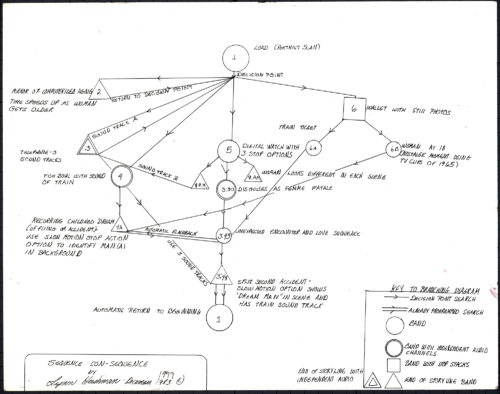 1
LOAD (ABSTRACT SLAM)
DECISION POINT
MENU OF COMPUTERIZED AGING
2
RETURN TO DECISION POINT
TIME SPEEDS UP AS WOMAN
GETS OLDER
6
WALLET WITH STILL PHOTOS
SOUND TRACK A
TRAIN TICKET
3
TELEPHONE-3
SOUND TRACKS
5
DIGITAL WATCH WITH
3 STOP OPTIONS
6A
6B
WOMAN AT 18
(NOSTALGIC MOMENT USING
TV CLIPS OF 1965)
SOUND TRACK 2
4
FISH BOWL WITH SOUND
OF TRAIN
WOMAN LOOKS DIFFERENT IN EACH SCENE
3:30
DISGUISES AS FEMME FATALE
RECURRING CHILDHOOD DREAM
(OFFLINE OR ACCIDENT)
USE SLOW MOTION STOP ACTION
OPTION TO IDENTIFY MAN(A)
IN BACKGROUND
7A
AUTOMATIC FLASHBACK
UNEXPECTED ENCOUNTER AND LOVE SEQUENCE
USE 2 SOUND TRACKS
SPLIT SECOND ACCIDENT-
SLOW MOTION OPTION SHOWS
"DREAM MAN" IN SCENE AND
HAS TRAIN SOUND TRACK
1
AUTOMATIC RETURN TO BEGINNING
KEY TO BRANCHING DIAGRAM
DECISION POINT SEARCH
ALREADY PROGRAMMED SEARCH
BAND
BAND WITH INDEPENDENT AUDIO
CHANNELS
BAND WITH STOP STACKS
END OF STORYLINE WITH
INDEPENDENT AUDIO
END OF STORYLINE BAND
SEQUENCE CON-SEQUENCE
BY
Lynn Hershman
©